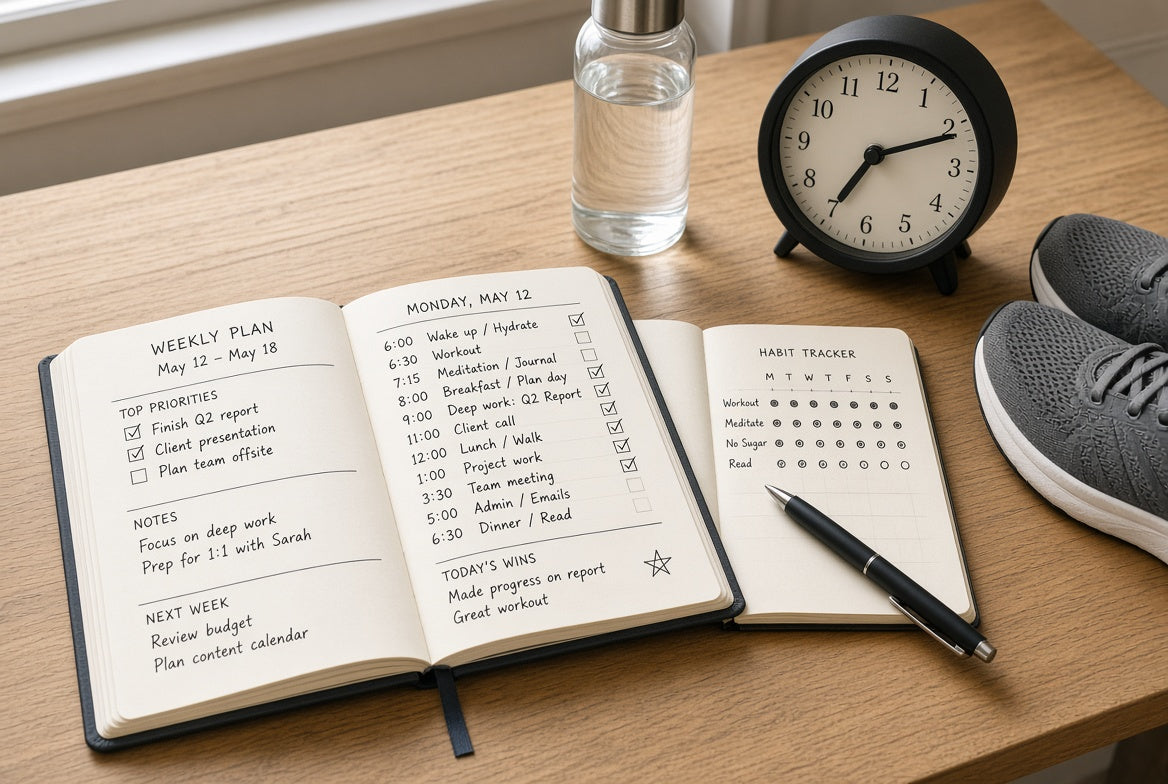 WEEKLY PLAN
May 12 – May 18
TOP PRIORITIES
Finish Q2 report
Client presentation
Plan team offsite
NOTES
Focus on deep work
Prep for 1:1 with Sarah
NEXT WEEK
Review budget
Plan content calendar
MONDAY, MAY 12
6:00 Wake up / Hydrate
6:30 Workout
7:15 Meditation / Journal
8:00 Breakfast / Plan day
9:00 Deep work: Q2 Report
11:00 Client call
12:00 Lunch / Walk
1:00 Project work
3:30 Team meeting
5:00 Admin / Emails
6:30 Dinner / Read
TODAY'S WINS
Made progress on report
Great workout
HABIT TRACKER
M T W T F S S
Workout
Meditate
No Sugar
Read
12
1
2
3
4
5
6
7
8
9
10
11